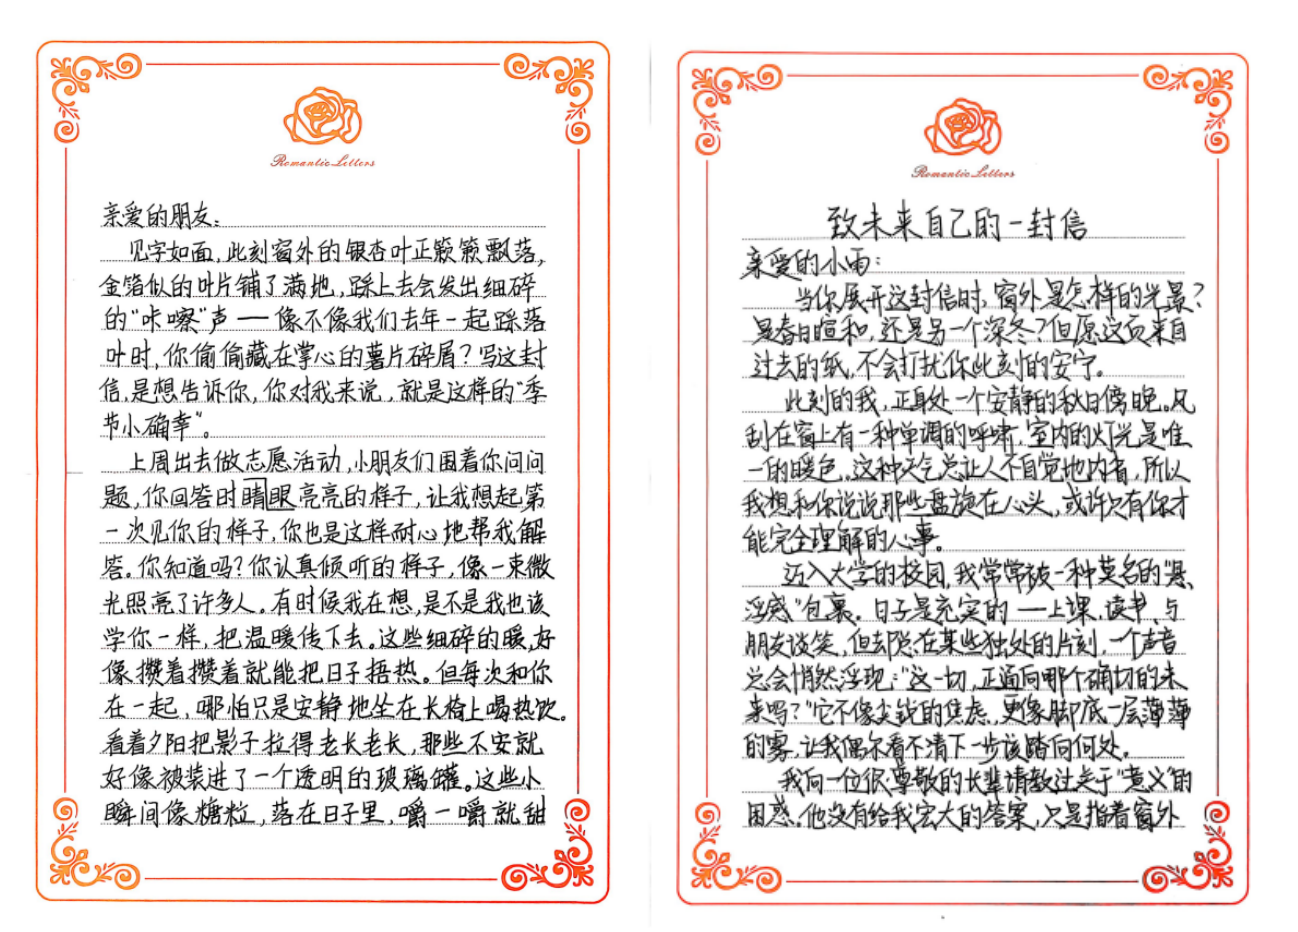 Romantic Letters
亲爱的朋友：
见字如面，此刻窗外的银杏叶正簌簌飘落，
金箔似的叶片铺了满地，踩上去会发出细碎
的“咔嚓”声——像不像我们去年一起踩落
叶时，你偷偷藏在掌心的薯片碎屑？写这封
信，是想告诉你，你对我来说，就是这样的“季
节小确幸”。
上周出去做志愿活动，小朋友们围着你问问
题，你回答时睛眼亮亮的样子，让我想起第
一次见你的样子，你也是这样耐心地帮我解
答。你知道吗？你认真倾听的样子，像一束微
光照亮了许多人。有时候我在想，是不是我也该
学你一样，把温暖传下去。这些细碎的暖，好
像攒着攒着就能把日子捂热。但每次和你
在一起，哪怕只是安静地坐在长椅上喝热饮。
看着夕阳把影子拉得老长老长，那些不安就
好像被装进了一个透明的玻璃罐。这些小
瞬间像糖粒，落在日子里，嚼一嚼就甜
Romantic Letters
致未来自己的一封信
亲爱的小雨：
当你展开这封信时，窗外是怎样的光景？
是春日暄和，还是另一个深冬？但愿这页来自
过去的纸，不会打扰你此刻的安宁。
此刻的我，正身处一个安静的秋日傍晚。风
刮在窗上有一种单调的呼啸，室内的灯光是唯
一的暖色。这种天气总让人不自觉地内省，所以
我想和你说说那些盘旋在心头，或许只有你才
能完全理解的心事。
迈入大学的校园，我常常被一种莫名的“悬
浮感”包裹。日子是充实的——上课、读书、与
朋友谈笑，但却总在某些独处的片刻，一个声音
总会悄然浮现：“这一切，正通向哪个确切的未
来吗？”它不像尖锐的焦虑，更像脚底一层薄薄
的雾，让我偶尔看不清下一步该踏向何处。
我向一位很尊敬的长辈请教过关于“意义”的
困惑。他没有给我宏大的答案，只是指着窗外